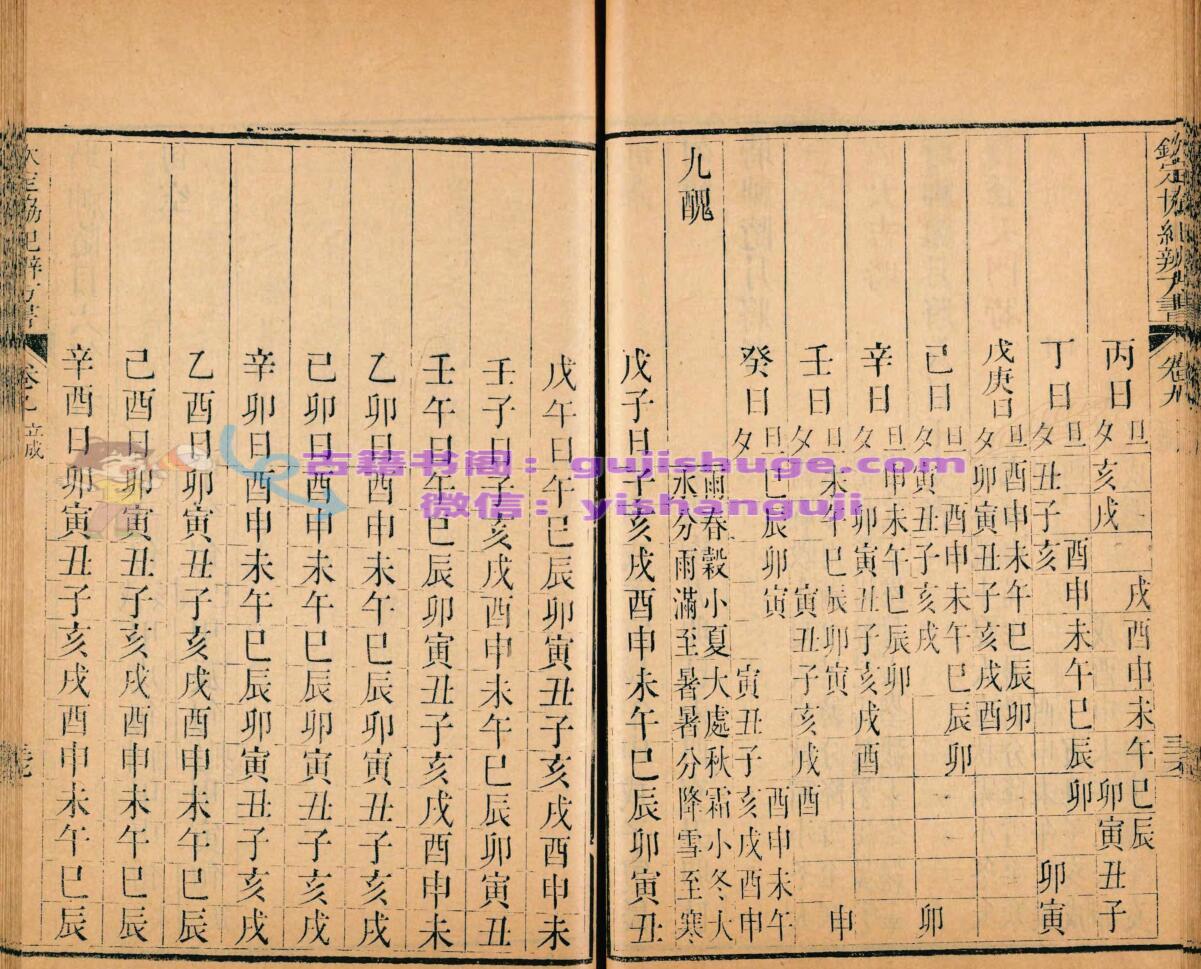 欽定協紀辨方書
卷九
丙日
旦亥戌 戌酉申未午巳辰
夕 卯寅丑子
丁日
旦 酉申未午巳辰卯
夕丑子亥 卯寅
戊庚日
旦酉申未午巳辰卯
夕卯寅丑子亥戌酉
己日
旦 酉申未午巳辰卯
夕寅丑子亥戌 卯
辛日
旦申未午巳辰卯
夕 卯寅丑子亥戌酉
壬日
旦未午巳辰卯寅 申
夕 寅丑子亥戌酉
癸日
旦巳辰卯寅 酉申未午
夕 寅丑子亥戌酉申
九醜
雨春穀小夏大處秋霜小冬大
水分雨滿至暑暑分降雪至寒
戊子日子亥戌酉申未午巳辰卯寅丑
戊午日午巳辰卯寅丑子亥戌酉申未
壬子日子亥戌酉申未午巳辰卯寅丑
壬午日午巳辰卯寅丑子亥戌酉申未
乙卯日酉申未午巳辰卯寅丑子亥戌
己卯日酉申未午巳辰卯寅丑子亥戌
辛卯日酉申未午巳辰卯寅丑子亥戌
乙酉日卯寅丑子亥戌酉申未午巳辰
己酉日卯寅丑子亥戌酉申未午巳辰
辛酉日卯寅丑子亥戌酉申未午巳辰
立成
古籍书阁：gujishuge.com
微信：yishanguji